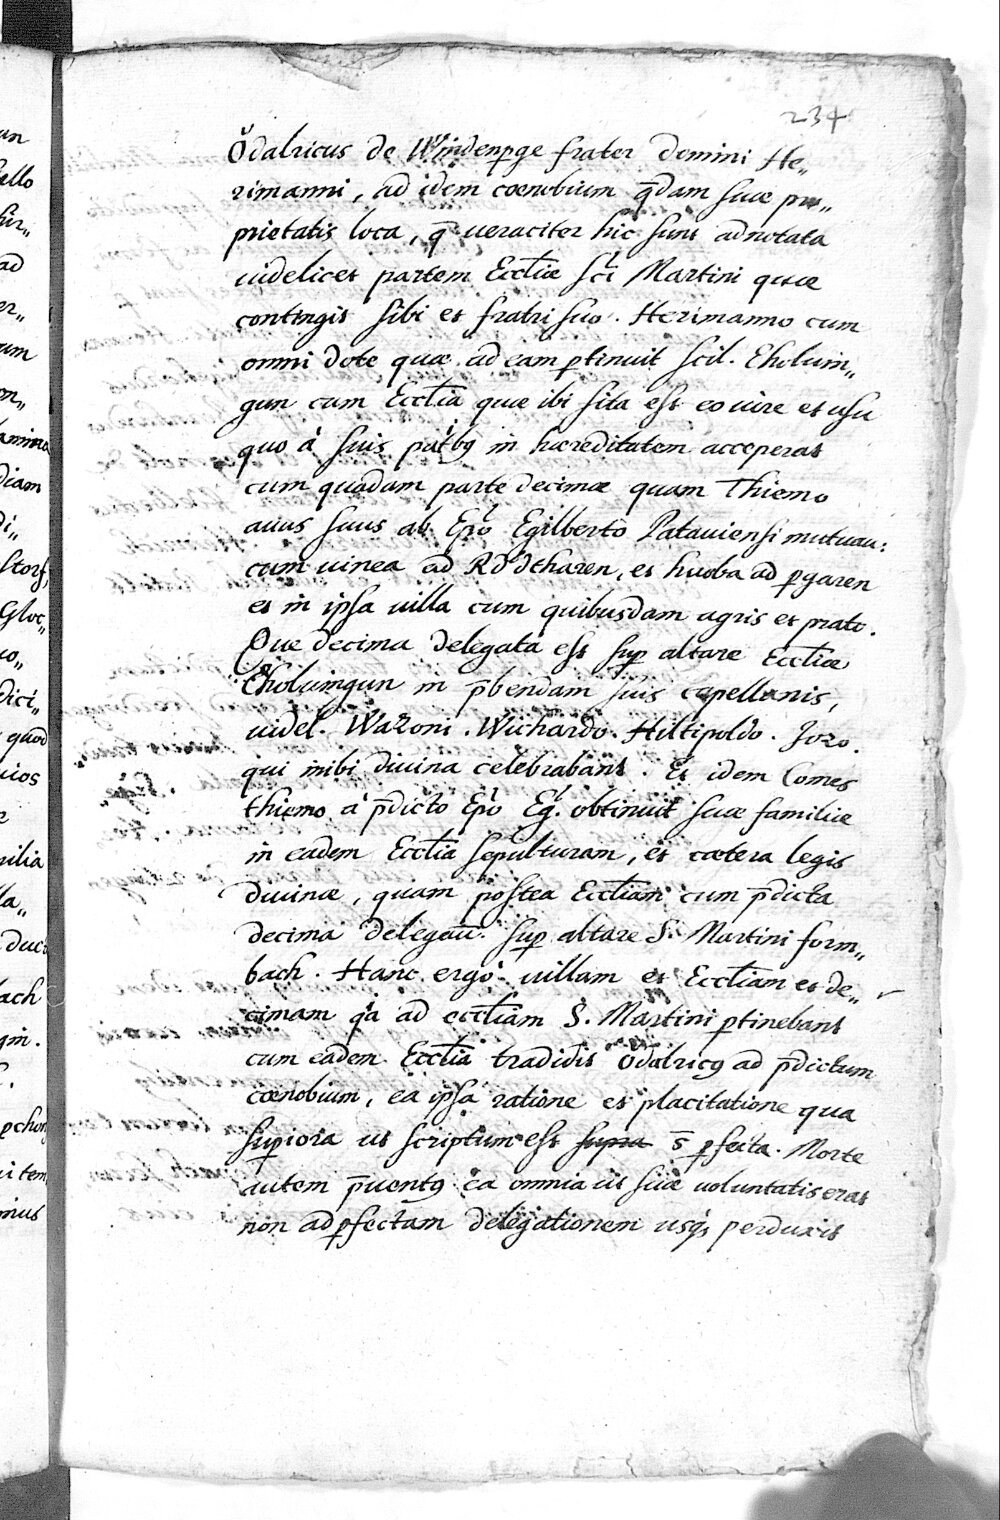 234
Ŏdalricus de Windenp̱ge frater domini He„
rimanni, ad idem cœnobium q̄dam suæ pro„
prietatis loca, q̄ ueraciter hic sunt adnotata
uidelicet partem Eccl̄iæ Sc̄i Martini quæ
contingit sibi et fratri suo. Herimanno cum
omni dote quæ ad eam p̱tinuit scil. Eholuin„
gun cum Eccl̄ia quæ ibi sita est eo iure et usu
quo à suis patꝛibꝫ in hæreditatem acceperat
cum quadam parte decimæ quam Thiemo
auus suus ab Ep̄o Egilberto Patauiensi mutuau:
cum uinea ad et huoba ad p̱garen
et in ipsa uilla cum quibusdam agris et prato.
Que decima delegata est sup̱ altare Eccl̄iæ
Eholuingun in p̄bendam suis capellanis,
uidel. Wazoni. Wichardo. Hiltipoldo. Jozo.
qui inibi diuina celebrabant. Et idem Comes
thiemo à p̄dicto Ep̄o Eg. obtinuit suæ familiæ
in eadem Eccl̄ia sepulturam, et cætera legis
diuinæ, quam postea Eccl̄iam cum p̄dicta
decima delegau̅. sup̱ altare S. Martini form„
bach. Hanc ergo uillam et Eccl̄iam et de„
cimam q̇a ad eccl̄iam S. Martini p̱tinebant
cum eadem Eccl̄ia tradidit Ŏdalricꝰ ad p̄dictum
cœnobium, ea ipsa ratione et placitatione qua
sup̱iora ut scriptum est supra s̄ p̱fecta. Morte
autem p̄uentꝰ ea omnia ut suæ voluntatis erat
non ad p̱fectam delegationem usqꝫ perduxit